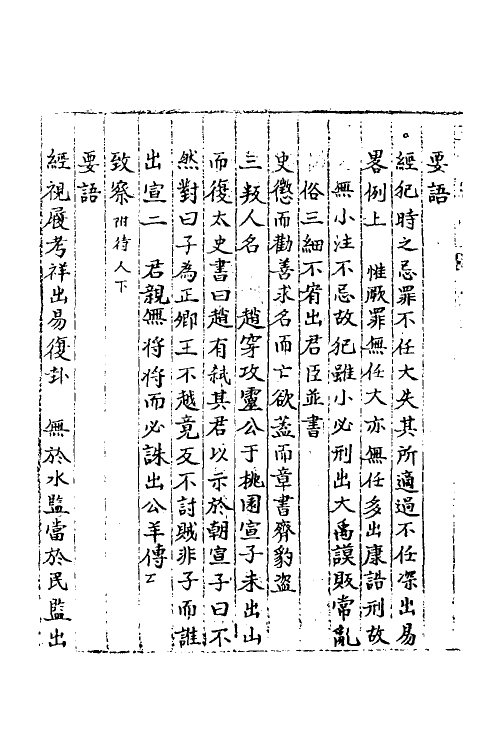 要語
經犯時之忌罪不任大失其所適過不任深出易
畧例上 惟厥罪無任大亦無任多出康誥刑故
無小注不忌故犯雖小必刑出大禹謨敗常亂
俗三細不宥出君臣並書
史懲而勸善求名而亡欲蓋而章書齊豹盜
三叛人名 趙穿攻靈公于桃園宣子未出山
而復太史書曰趙有弒其君以示於朝宣子曰不
然對曰子為正卿王不越竟反不討賊非子而誰
出宣二 君親無將將而必誅出公羊傳
致察附待人下
要語
經視履考祥出易復卦 無於水監當於民監出